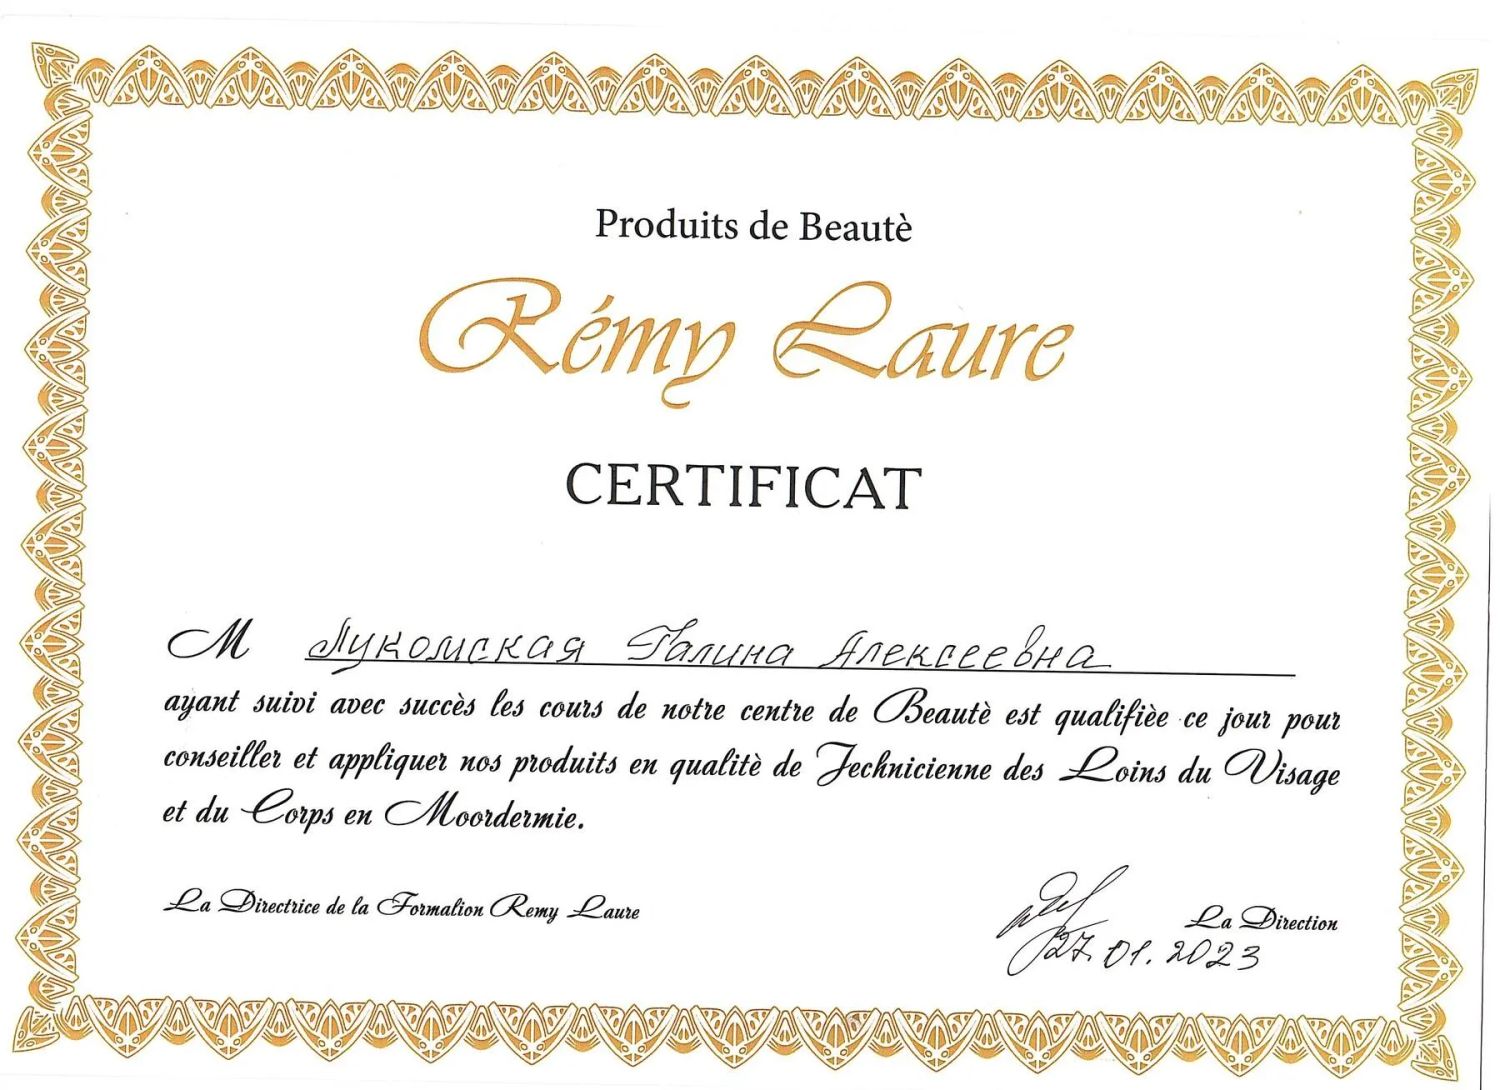 Produits de Beautè
Rémy Laure
CERTIFICAT
M Лукомская Галина Алексеевна
ayant suivi avec succès les cours de notre centre de Beautè est qualifièe ce jour pour
conseiller et appliquer nos produits en qualitè de Technicienne des Loins du Visage
et du Corps en Moordermie.
La Directrice de la Formalion Remy Laure
La Direction
27.01.2023